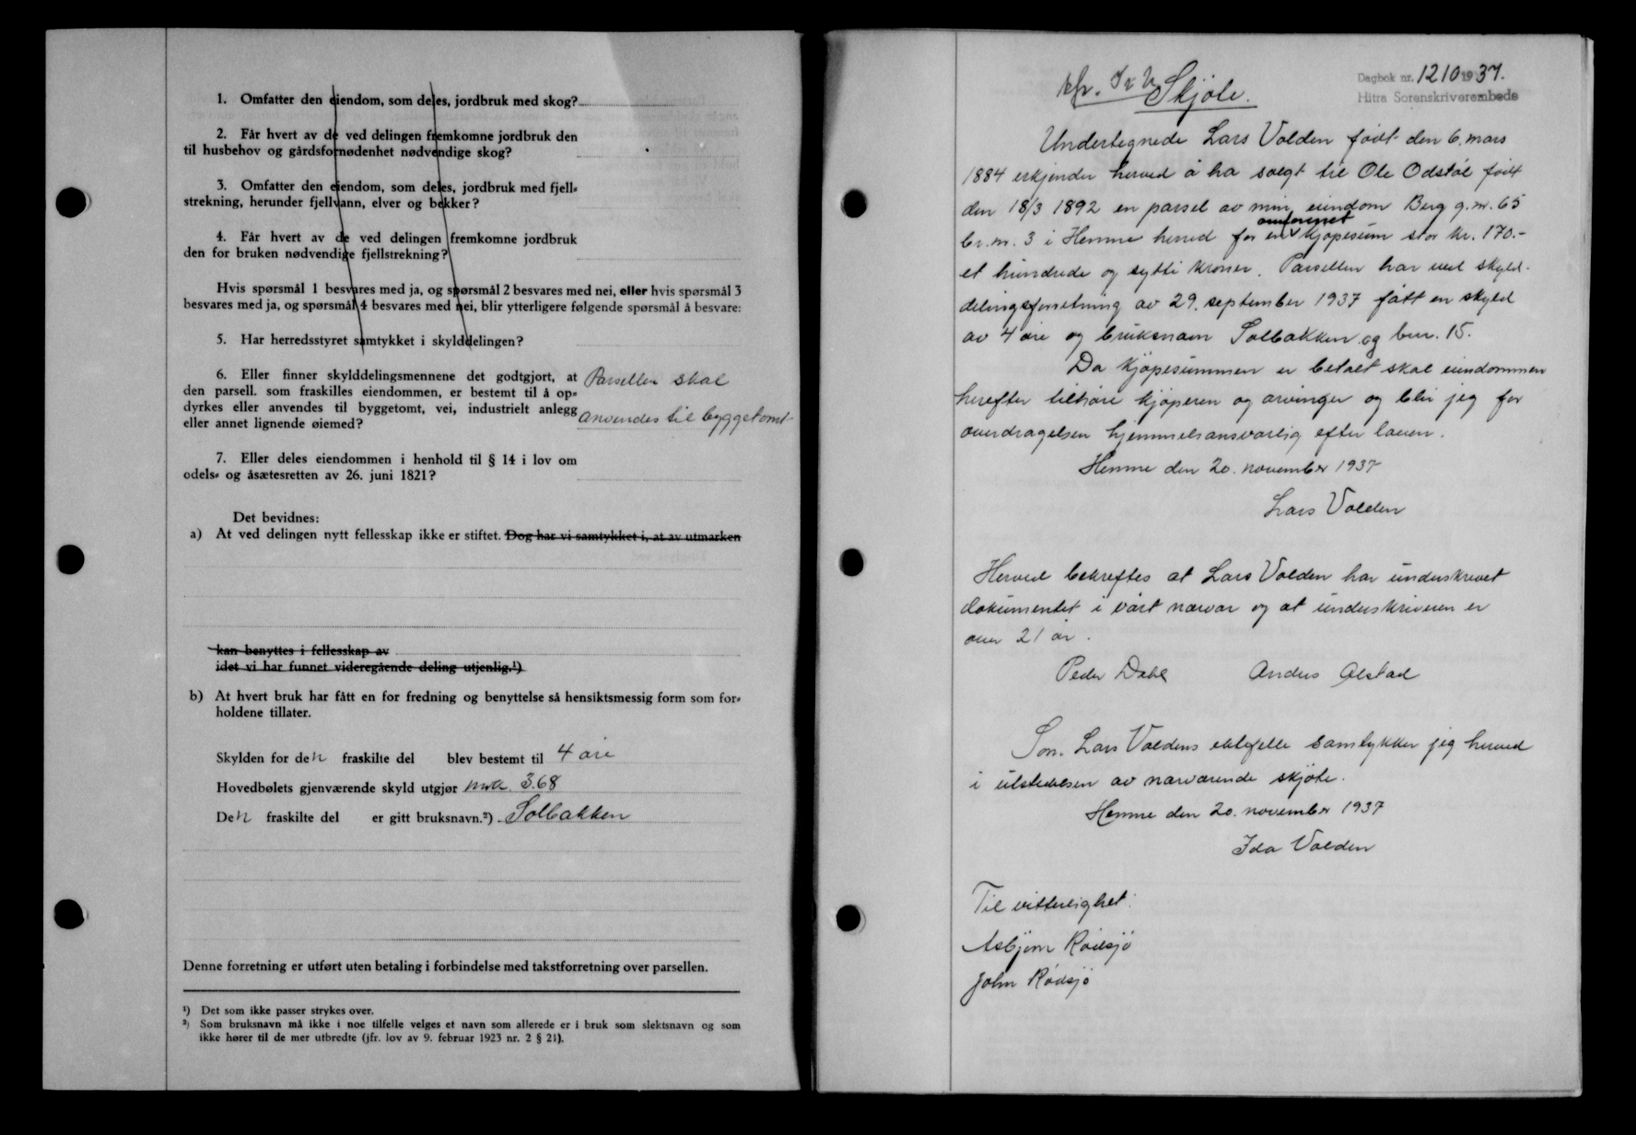 1. Omfatter den eiendom, som deles, jordbruk med skog?
2. Får hvert av de ved delingen fremkomne jordbruk den
til husbehov og gårdsfornødenhet nødvendige skog?
3. Omfatter den eiendom, som deles, jordbruk med fjell=
strekning, herunder fjellvann, elver og bekker?
4. Får hvert av de ved delingen fremkomne jordbruk
den for bruken nødvendige fjellstrekning?
Hvis spørsmål 1 besvares med ja, og spørsmål 2 besvares med nei, eller hvis spørsmål 3
besvares med ja, og spørsmål 4 besvares med nei, blir ytterligere følgende spørsmål å besvare:
5. Har herredsstyret samtykket i skylddelingen?
6. Eller finner skylddelingsmennene det godtgjort, at Parsellen skal
den parsell. som fraskilles eiendommen, er bestemt til å op=
dyrkes eller anvendes til byggetomt, vei, industrielt anlegg anvendes til byggetomt
eller annet lignende øiemed?
7. Eller deles eiendommen i henhold til § 14 i lov om
odels= og åsætesretten av 26. juni 1821?
Det bevidnes:
a) At ved delingen nytt fellesskap ikke er stiftet. Dog har vi samtykket i, at av utmarken
kan benyttes i fellesskap av
idet vi har funnet videregående deling utjenlig.¹)
b) At hvert bruk har fått en for fredning og benyttelse så hensiktsmessig form som for=
holdene tillater.
Skylden for den fraskilte del blev bestemt til 4 øre
Hovedbølets gjenværende skyld utgjør mrk. 3.68
Den fraskilte del er gitt bruksnavn.²) Solbakken
Denne forretning er utført uten betaling i forbindelse med takstforretning over parsellen.
¹) Det som ikke passer strykes over.
²) Som bruksnavn må ikke i noe tilfelle velges et navn som allerede er i bruk som slektsnavn og som
ikke hører til de mer utbredte (jfr. lov av 9. februar 1923 nr. 2 § 21).
Dagbok nr. 1210 1937.
Hitra Sorenskriverembede
Skjøte.
Undertegnede Lars Volden født den 6. mars
1884 erkjender herved å ha solgt til Ole Odstøl født
den 18/3 1892 en parsel av min eiendom Berg g.nr. 65
omforenet
br.nr. 3 i Hemne herred for en kjøpesum stor kr. 170.-
et hundrede og sytti kroner. Parsellen har ved skyld-
delingsforretning av 29. september 1937 fått en skyld
av 4 øre og bruksnavn Solbakken og bnr. 15.
Da kjøpesummen er betalt skal eiendommen
herefter tilhøre kjøperen og arvinger og blir jeg for
overdragelsen hjemmelsansvarlig efter loven.
Hemne den 20. november 1937
Lars Volden
Herved bekreftes at Lars Volden har underskrevet
dokumentet i vårt nærvær og at underskriveren er
over 21 år.
Peder Dahl Anders Alstad
Som Lars Voldens ektefelle samtykker jeg herved
i utstedelsen av nærværende skjøte.
Hemne den 20. november 1937
Ida Volden
Til vitterlighet:
Asbjørn Rødsjø
John Rødsjø